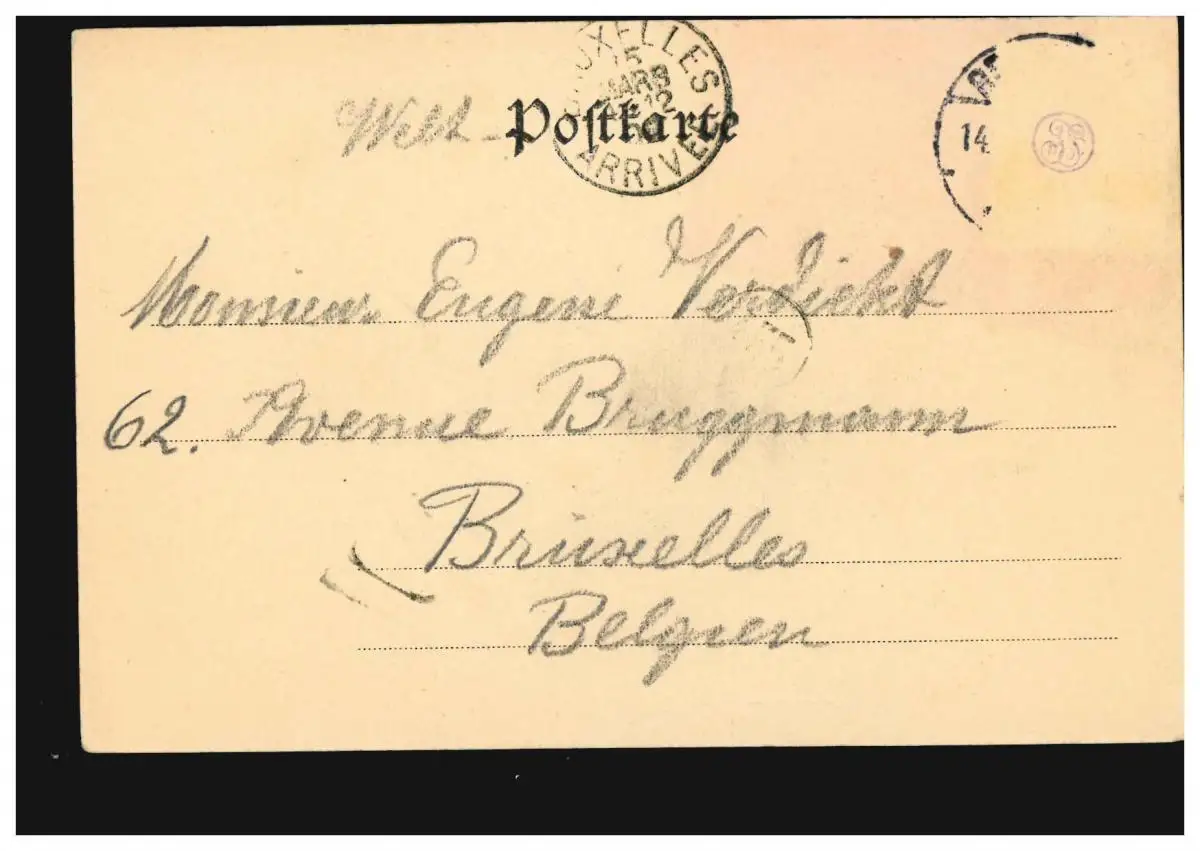 BRUXELLES
15
MARS
12
ARRIVEE
Welt-Postkarte
14.
Monsieur Eugene Verdickt
62. Avenue Bruggmann
Bruxelles
Belgien